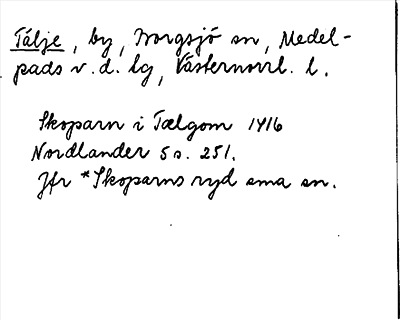 Tälje, by, Borgsjö sn, Medel-
pads v. d. lg, Västernorrl. l.
Skoparn i Tælgom 1416
Nordlander 5 s. 251.
Jfr *Skoparns ryd sma sn.